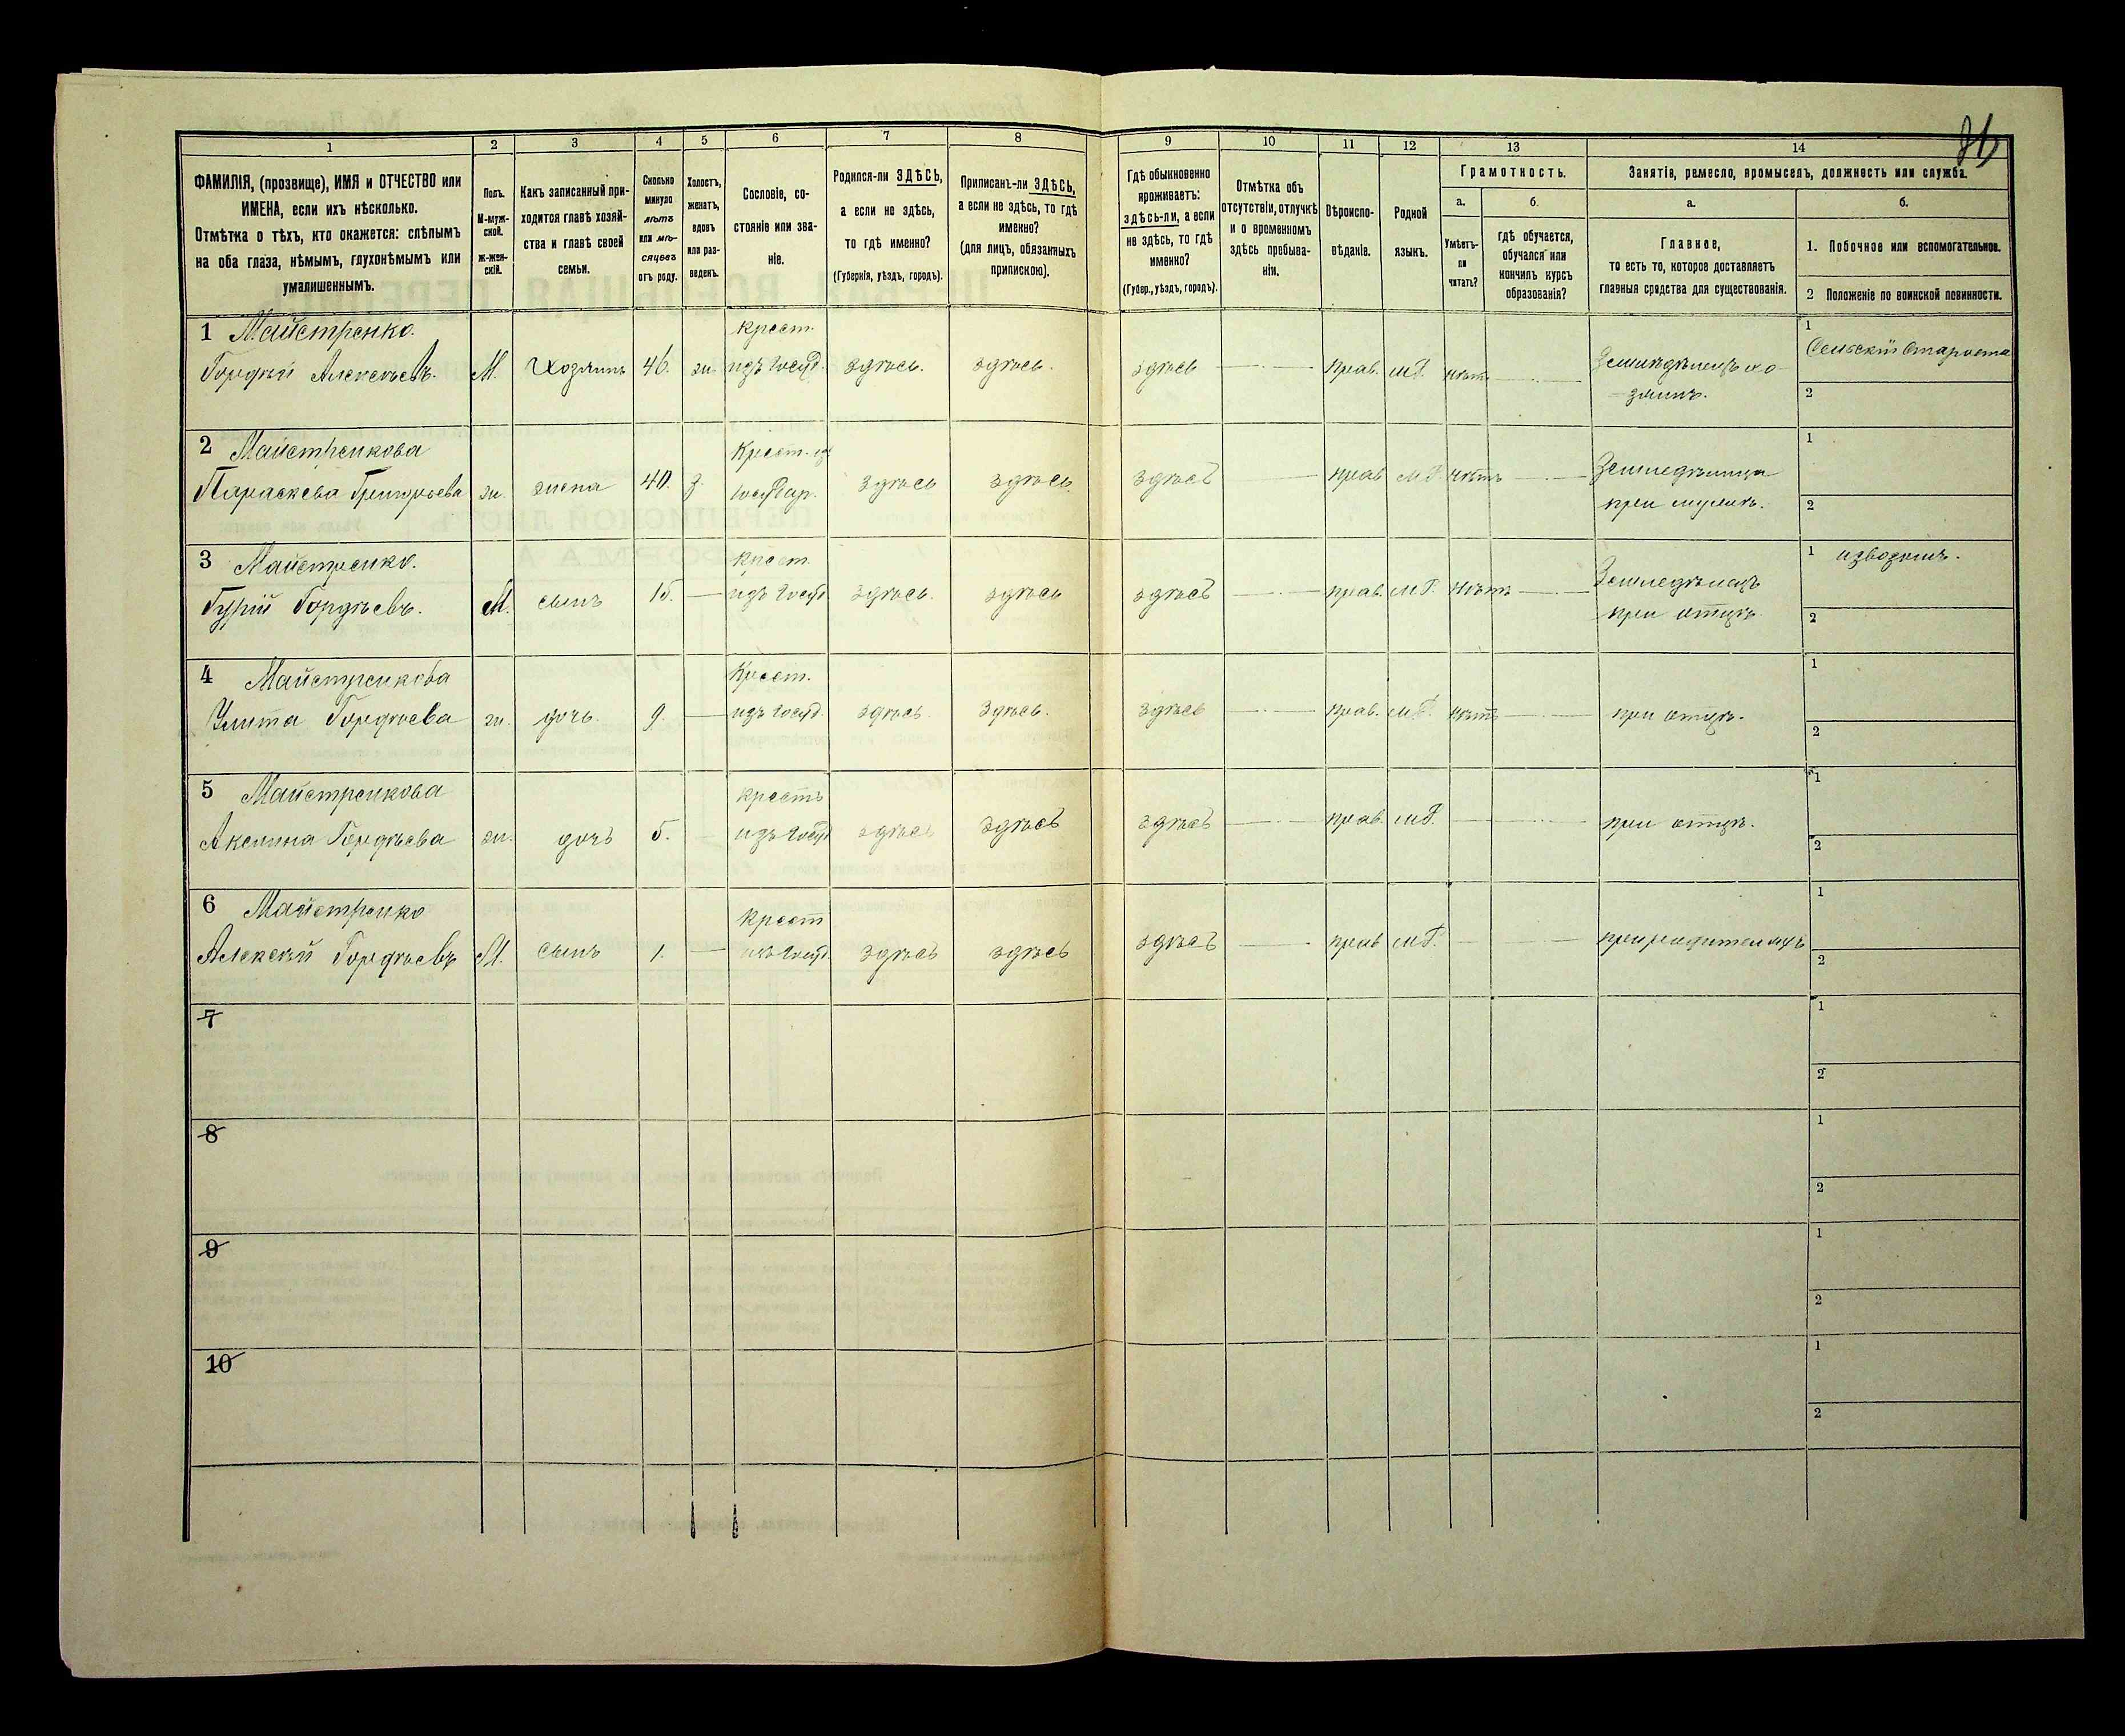 36
1 2 3 4 5 6 7 8 9 10 11 12 13 14
ФАМИЛІЯ, (прозвище), ИМЯ и ОТЧЕСТВО или
ИМЕНА, если ихъ нѣсколько.
Отмѣтка о тѣхъ, кто окажется: слѣпымъ
на оба глаза, нѣмымъ, глухонѣмымъ или
умалишеннымъ.
Полъ.
М-муж-
ской.
Ж-жен-
скій.
Какъ записанный при-
ходится главѣ хозяй-
ства и главѣ своей
семьи.
Сколько
минуло
лѣтъ
или мѣ-
сяцевъ
отъ роду.
Холостъ,
женатъ,
вдовъ
или раз-
веденъ.
Сословіе, со-
стояніе или зва-
ніе.
Родился-ли ЗДѢСЬ,
а если не здѣсь,
то гдѣ именно?
(Губернія, уѣздъ, городъ).
Приписанъ-ли ЗДѢСЬ,
а если не здѣсь, то гдѣ
именно?
(для лицъ, обязанныхъ
припискою).
Гдѣ обыкновенно
проживаетъ:
здѣсь-ли, а если
не здѣсь, то гдѣ
именно?
(Губер., уѣздъ, городъ).
Отмѣтка объ
отсутствіи, отлучкѣ
и о временномъ
здѣсь пребыва-
ніи.
Вѣроиспо-
вѣданіе.
Родной
языкъ.
Грамотность.
а.
Умѣетъ-
ли
читать?
б.
гдѣ обучается,
обучался или
кончилъ курсъ
образованія?
Занятіе, ремесло, промыселъ, должность или служба.
а.
Главное,
то есть то, которое доставляетъ
главныя средства для существованія.
б.
1. Побочное или вспомогательное.
2 Положеніе по воинской повинности.
1 Майстренко. крест. 1 Сельскій Староста
Гордѣй Алексѣевъ. М. Хозяинъ 46. ж. изъ Госуд. здѣсь. здѣсь. здѣсь — прав. мР. нѣтъ — Земледѣлецъ хо-
зяинъ. 2
2 Майстренкова Крест. из 1
Параскева Григорьева ж. жена 40. з. Государ. здѣсь здѣсь здѣсь — прав мР. нѣтъ — Земледѣлица
при мужѣ. 2
3 Майстренко. Крест. 1 извозчикъ.
Гурій Гордѣевъ. М. сынъ 15. — изъ Госуд. здѣсь. здѣсь здѣсь — прав. мР. нѣтъ — Земледѣлецъ
при отцѣ. 2
4 Майстренкова Крест. 1
Улита Гордѣева ж. дочь. 9. — изъ Госуд. здѣсь. здѣсь. здѣсь — прав. мР. нѣтъ — при отцѣ. 2
5 Майстренкова крестъ 1
Акелина Гордѣева ж. дочь 5. — изъ Госуд здѣсь здѣсь здѣсь — прав. мР. — при отцѣ. 2
6 Майстренко Крест 1
Алексѣй Гордѣевъ М. сынъ 1. — изъ Госуд. здѣсь здѣсь здѣсь — прав мР. — при родителяхъ 2
7 1
2
8 1
2
9 1
2
10 1
2